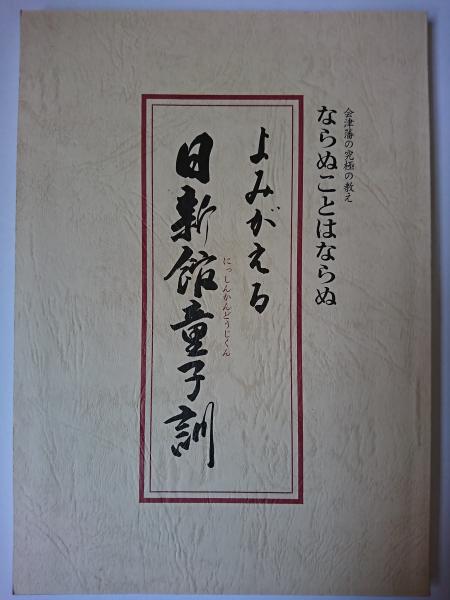 会津藩の究極の教え
ならぬことはならぬ
よみがえる
日新館童子訓
にっしんかんどうじくん